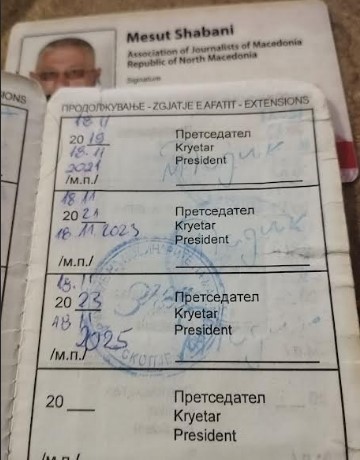 Mesut Shabani
Association of Journalists of Macedonia
Republic of North Macedonia
Signature
IONS
ПРОДОЛЖУВАЊЕ - ZGJATJE E AFATIT - EXTENSIONS
18.11
20 19
18.11
2021
/м.п./
Претседател
Kryetar
President
18.11
20 21
18.11.2023
/м.п./
Претседател
Kryetar
President
18.11
20 23
18.11
2025
/м.п./
Претседател
Kryetar
President
СКОПЈЕ
20
Претседател
Kryetar
President
/м.п./